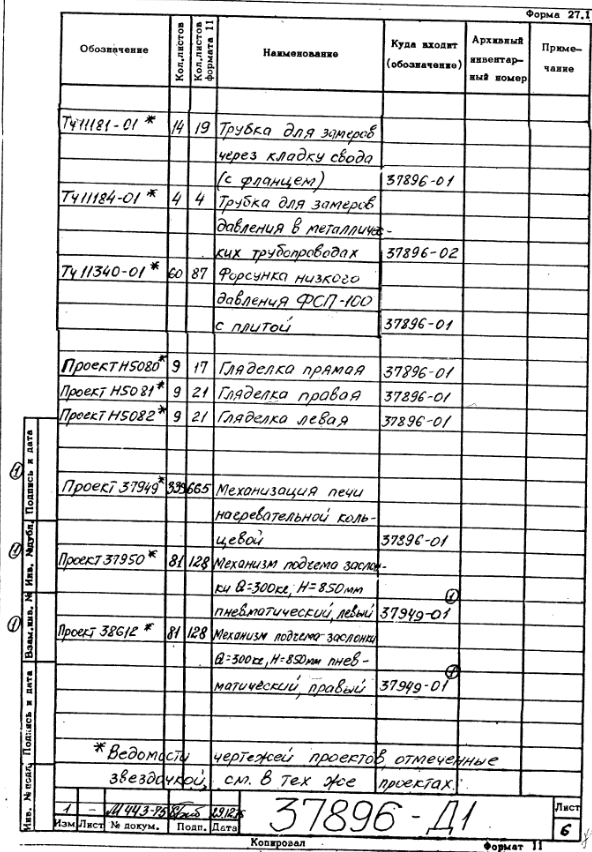 Форма 27.1
Обозначение Кол.листов Кол.листов формата 11 Наименование Куда входит (обозначение) Архивный инвентар- ный номер Приме- чание
Тч11181-01 * 14 19 Трубка для замеров
через кладку свода
(с фланцем) 37896-01
Тч11184-01 * 4 4 Трубка для замеров
давления в металличес-
ких трубопроводах 37896-02
Тч11340-01 * 60 87 Форсунка низкого
давления ФСП-100
с плитой 37896-01
Проект Н5080 * 9 17 Гляделка прямая 37896-01
Проект Н5081 * 9 21 Гляделка правая 37896-01
Проект Н5082 * 9 21 Гляделка левая 37896-01
Проект 37949 * 339 665 Механизация печи
нагревательной коль-
цевой 37896-01
Проект 37950 * 81 128 Механизм подъема заслон-
ки Q=300кг, Н=850мм
пневматический, левый 37949-01
1
Проект 38612 * 81 128 Механизм подъема заслонки
Q=300кг, Н=850мм пнев-
матический, правый 37949-01
1
* Ведомости чертежей проектов, отмеченные
звездочкой, см. в тех же проектах.
1 - М443-75
Изм Лист № докум. Подп. Дата
37896-Д1
Лист
6
Копировал Формат 11
Инв. № подл. Подпись и дата Взам.инв. № Инв. №дубл. Подпись и дата
1
1
1